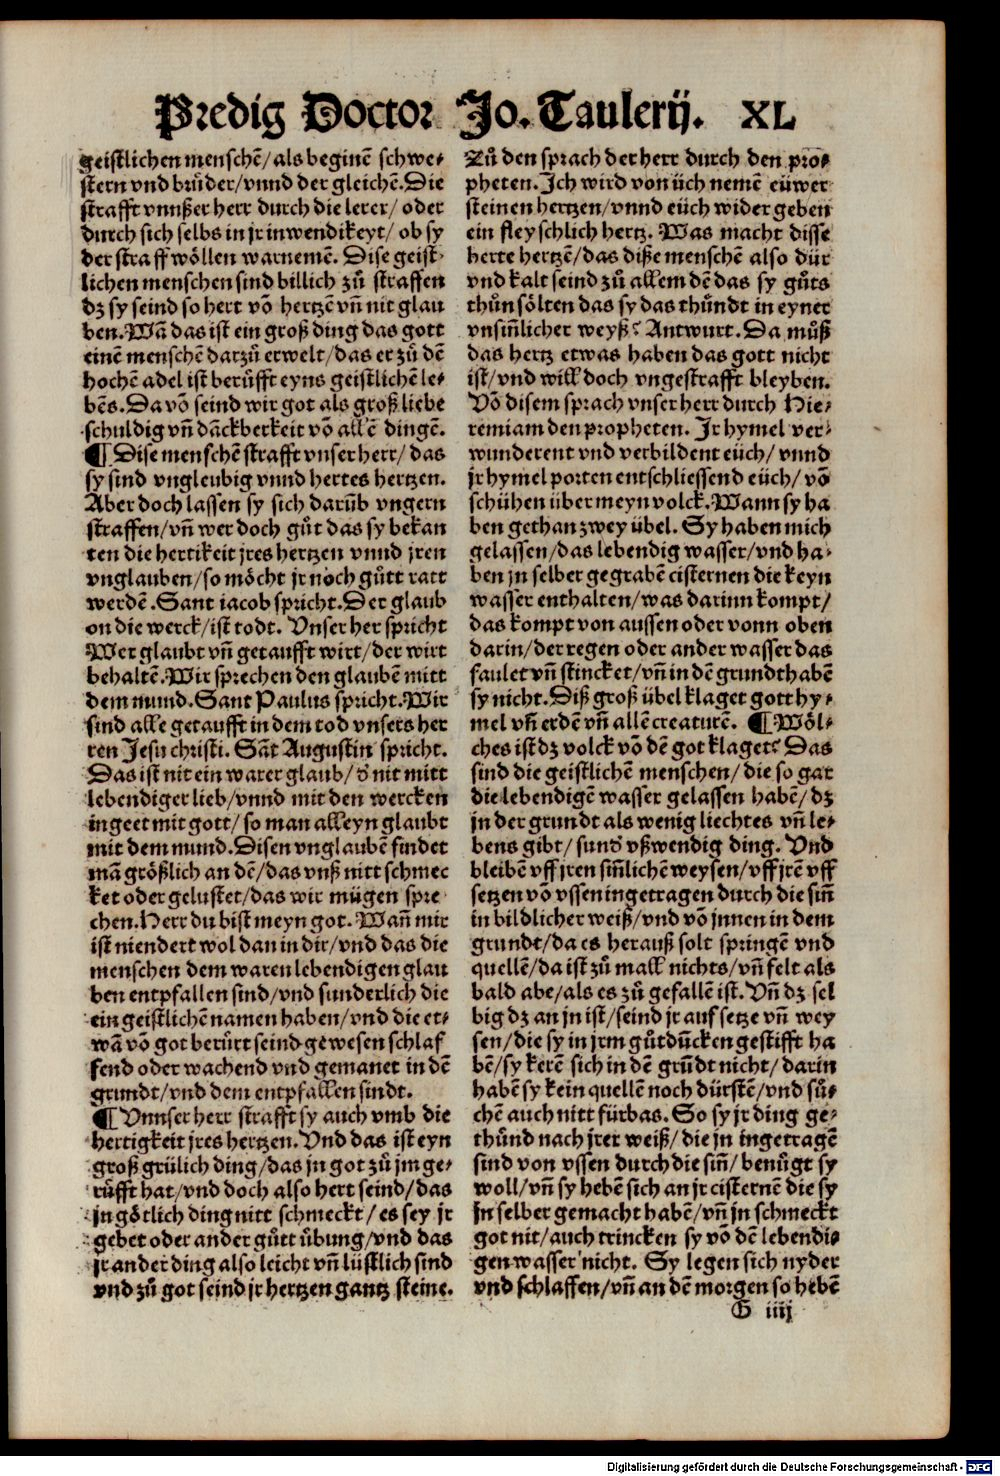 Predig Doctor Jo. Taulerij. XL
geistlichen menschē/als beginē schwe⸗
stern vnd brůder/vnnd der gleichē. Die
strafft vnnßer herr durch die lerer/ oder
durch sich selbs in jr inwendikeyt/ ob sy
der straff wöllen warnemē. Dise geist⸗
lichen menschen sind billich zů straffen
dz sy seind so hert vō hertzē vñ nit glau
ben. Wā das ist ein groß ding das gott
einē menschē darzů erwelt/das er zů dē
hochē adel ist berůfft eyns geistlichē le⸗
bēs. Da vō seind wir got als groß liebe
schuldig vñ dāckberkeit vō allē dingē.
¶ Dise menschē strafft vnser herr/ das
sy sind vngleubig vnnd hertes hertzen.
Aber doch lassen sy sich darūb vngern
straffen/vñ wer doch gůt das sy bekan
ten die hertikeit jres hertzen vnnd jren
vnglauben/so möcht jr noch gůtt ratt
werdē. Sant iacob spricht. Der glaub
on die werck/ist todt. Vnser her spricht
Wer glaubt vñ getaufft wirt/der wirt
behaltē. Wir sprechen den glaubē mitt
dem mund. Sant Paulus spricht. Wir
sind alle getaufft in dem tod vnsers her
ren Jesu christi. Sāt Augustin spricht.
Das ist nit ein warer glaub/ď nit mitt
lebendiger lieb/vnnd mit den wercken
ingeet mit gott/ so man alleyn glaubt
mit dem mund. Disen vnglaubē findet
mā größlich an dē/das vnß nitt schmec
ket oder gelustet/das wir mügen spre⸗
chen. Herr du bist meyn got. Wañ mir
ist niendert wol dan in dir/vnd das die
menschen dem waren lebendigen glau
ben entpfallen sind/vnd sunderlich die
ein geistlichē namen haben/vnd die et⸗
wā vō got berůrt seind gewesen schlaf
fend oder wachend vnd gemanet in dē
grundt/vnd dem entpfallen sindt.
¶ Vnnser herr strafft sy auch vmb die
hertigkeit jres hertzen. Vnd das ist eyn
groß grülich ding/das jn got zů jm ge⸗
růfft hat/vnd doch also hert seind/das
jn götlich ding nitt schmeckt/es sey jr
gebet oder ander gůtt übung/vnd das
jr ander ding also leicht vñ lüstlich sind
vnd zů got seind jr hertzen gantz steine.
Zů den sprach der herr durch den pro⸗
pheten. Ich wird von üch nemē eüwer
steinen hertzen/vnnd eüch wider geben
ein fleyschlich hertz. Was macht disse
herte hertzē/das diße menschē also dür
vnd kalt seind zů allem dē das sy gůts
thůn sölten das sy das thůndt in eyner
vnsiñlicher weyß? Antwurt. Da můß
das hertz etwas haben das gott nicht
ist/vnd will doch vngestrafft bleyben.
Vō disem sprach vnser herr durch Hie⸗
remiam den propheten. Ir hymel ver⸗
wunderent vnd verbildent eüch/ vnnd
jr hymel porten entschliessend eüch/ vō
schühen über meyn volck. Wann sy ha
ben gethan zwey übel. Sy haben mich
gelassen/das lebendig wasser/vnd ha⸗
ben jn selber gegrabē cisternen die keyn
wasser enthalten/was darinn kompt/
das kompt von aussen oder vonn oben
darin/der regen oder ander wasser das
faulet vñ stincket/vñ in dē grundt habē
sy nicht. Diß groß übel klaget gott hy⸗
mel vñ erdē vñ allē creaturē. ¶ Wöl⸗
ches ist dz volck vō dē got klaget? Das
sind die geistlichē menschen/ die so gar
die lebendigē wasser gelassen habē/ dz
jn der grundt als wenig liechtes vñ le⸗
bens gibt/ sunď vßwendig ding. Vnd
bleibē vff jren siñlichē weysen/vff jrē vff
setzen vō vssen ingetragen durch die siñ
in bildlicher weiß/vnd vō jnnen in dem
grundt/da es herauß solt springē vnd
quellē/da ist zů mall nichts/vñ felt als
bald abe/als es zů gefallē ist. Vñ dz sel
big dz an jn ist/seind jr auf setze vñ wey
sen/die sy in jrm gůtdūcken gestifft ha
bē/sy kerē sich in dē grūdt nicht/ darin
habē sy kein quellē noch dürstē/vnd sů⸗
chē auch nitt fürbas. So sy jr ding ge⸗
thůnd nach jrer weiß/die jn ingetragē
sind von vssen durch die siñ/ benůgt sy
woll/vñ sy hebē sich an jr cisternē die sy
jn selber gemacht habē/vñ jn schmeckt
got nit/auch trincken sy vō dē lebendi⸗
gen wasser nicht. Sy legen sich nyder
vnd schlaffen/vñ an dē morgen so hebē
G iiij
Digitalisierung gefördert durch die Deutsche Forschungsgemeinschaft - DFG